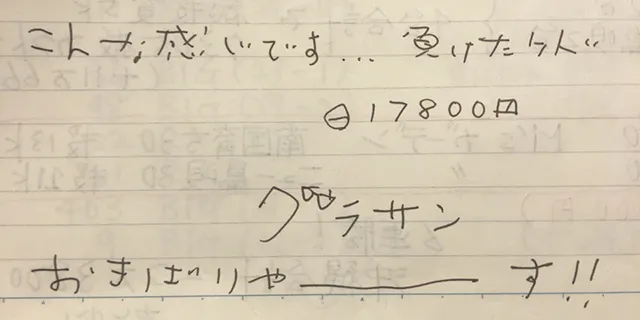 こんな感じです… 負けたケド
⊖17800円
グラサン
おきばりや―――す!!